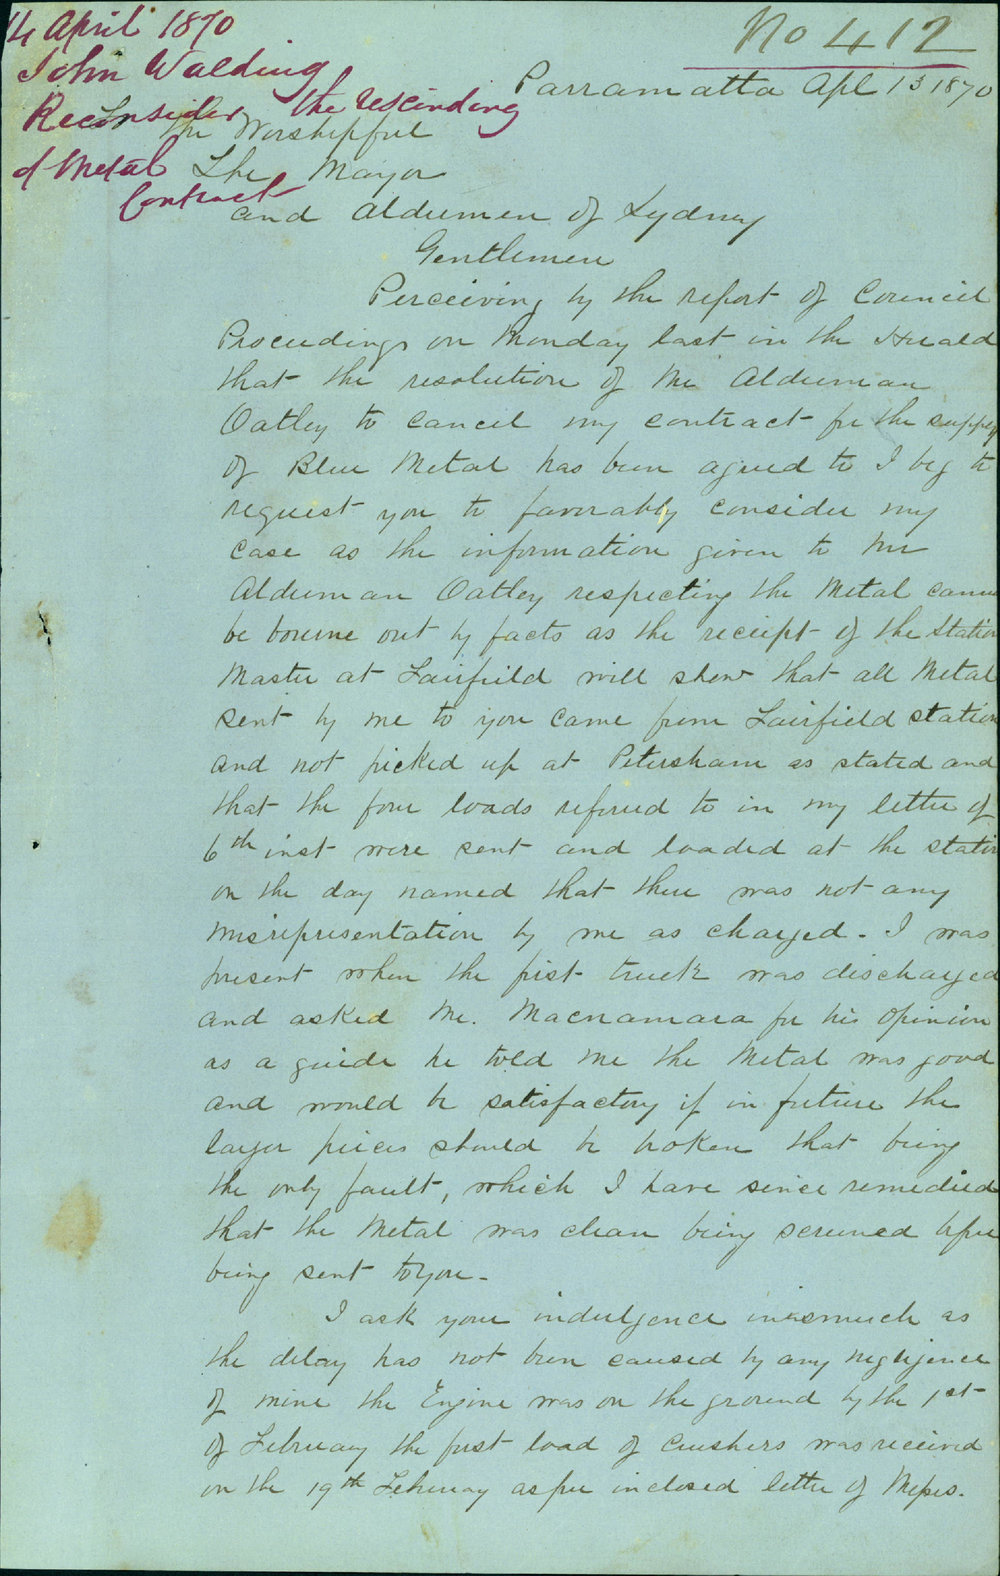 14 April 1870
John Walding
Reconsider the rescinding
of Metal
Contract
No 412
Parramatta Apl 13 1870
To the Worshipful
The Mayor
and Aldermen of Sydney
Gentlemen
Perceiving by the report of Council
Proceedings on Monday last in the Herald
that the resolution of Mr Alderman
Oatley to cancel my contract for the supply
of Blue Metal has been agreed to I beg to
request you to favorably consider my
case as the information given to Mr
Alderman Oatley respecting the Metal cannot
be bourne out by facts as the receipt of the Station
Master at Fairfield will show that all Metal
sent by me to you came from Fairfield station
and not picked up at Petersham as stated and
that the four loads refered to in my letter of
6th inst were sent and loaded at the station
on the day named that there was not any
misrepresentation by me as charged - I was
present when the first truck was discharged
and asked Mr. Macnamara for his opinion
as a guide he told me the Metal was good
and would be satisfactory if in future the
larger pieces should be broken that being
the only fault, which I have since remedied
that the Metal was clean being screened before
being sent to you -
I ask your indulgence inasmuch as
the delay has not been caused by any negligence
of mine the Engine was on the ground by the 1st
of February the first load of Crushers was received
on the 19th February as per inclosed letter of Messrs.